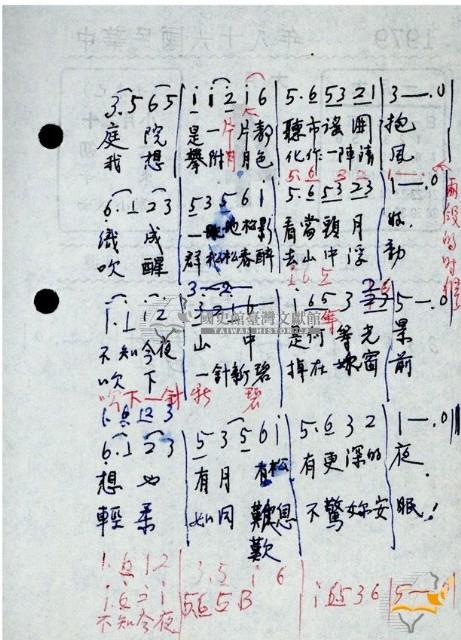 中華民國六十八年 1979
3. 5 6 5 | i i 2 i 6 | 5. 6 5 3 2 1 | 3 — . 0 |
庭 院 是一片片都 聽市謠 圍 抱
我 想 攀附 月色 化作一陣清 風
5. 6 3 2 1
6. 1 2 3 | 5 3 5 6 i | 5. 6 5 3 2 3 | 1 — . 0 |
織 成 一 地松影 看當頭月
吹 醒 群松松春醉 去山中浮 動
兩段的時
1 6 5
3 — 2
1. 1 1 2 | 1 6 5 3 | 5 — . 0 |
不知今夜 山 中 是何年 等老 景
國史館臺灣文獻館
TAIWAN HISTORICA
吹 下 一針新碧 掉在妳窗 前
吹下一針 新 碧
1. 6 1 2 3
6. 1 2 3 | 5 3 5 6 i | 5. 6 3 2 | 1 — . 0 |
想 也 有月 有松 有更深的 夜.
輕柔 如同 歎息 不驚妳安 眠!
歎
1. 6 1. 2 | 3. 5 i 6
i. 6 2 i | 5 6 5 3 | i 6 5 3 6 | 5 —
不知今夜